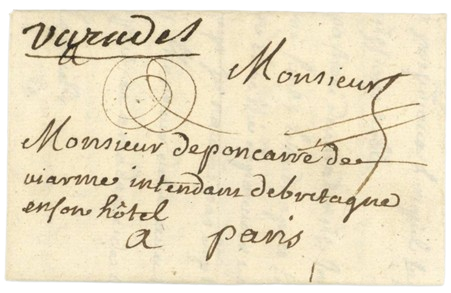 Varades
Monsieur
Monsieur deponcarré de
viarme intendant debretagne
enson hôtel
a paris